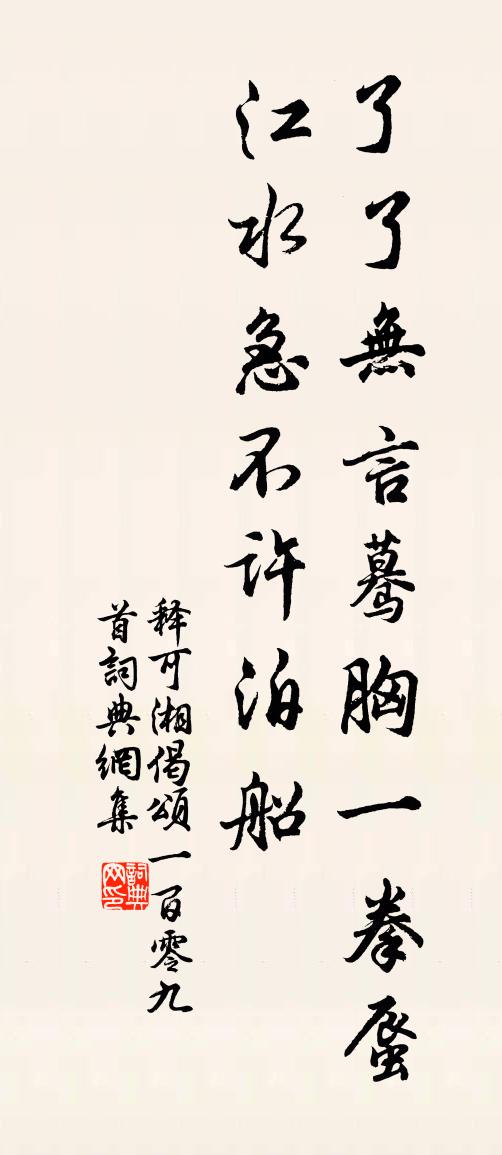 了了無言驀胸一拳蜃
江水急不許泊船
释可湘偈頌一百零九
首詞典網集
詞典网印